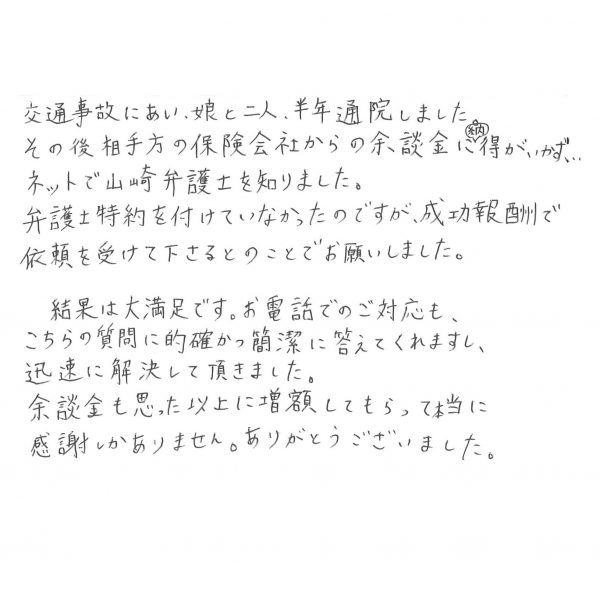 交通事故にあい、娘と二人、半年通院しました。
その後相手方の保険会社からの余談金に納得がいかず、..
ネットで山崎弁護士を知りました。
弁護士特約を付けていなかったのですが、成功報酬で
依頼を受けて下さるとのことでお願いしました。
結果は大満足です。お電話でのご対応も、
こちらの質問に的確かつ簡潔に答えてくれますし、
迅速に解決して頂きました。
余談金も思った以上に増額してもらって本当に
感謝しかありません。ありがとうございました。